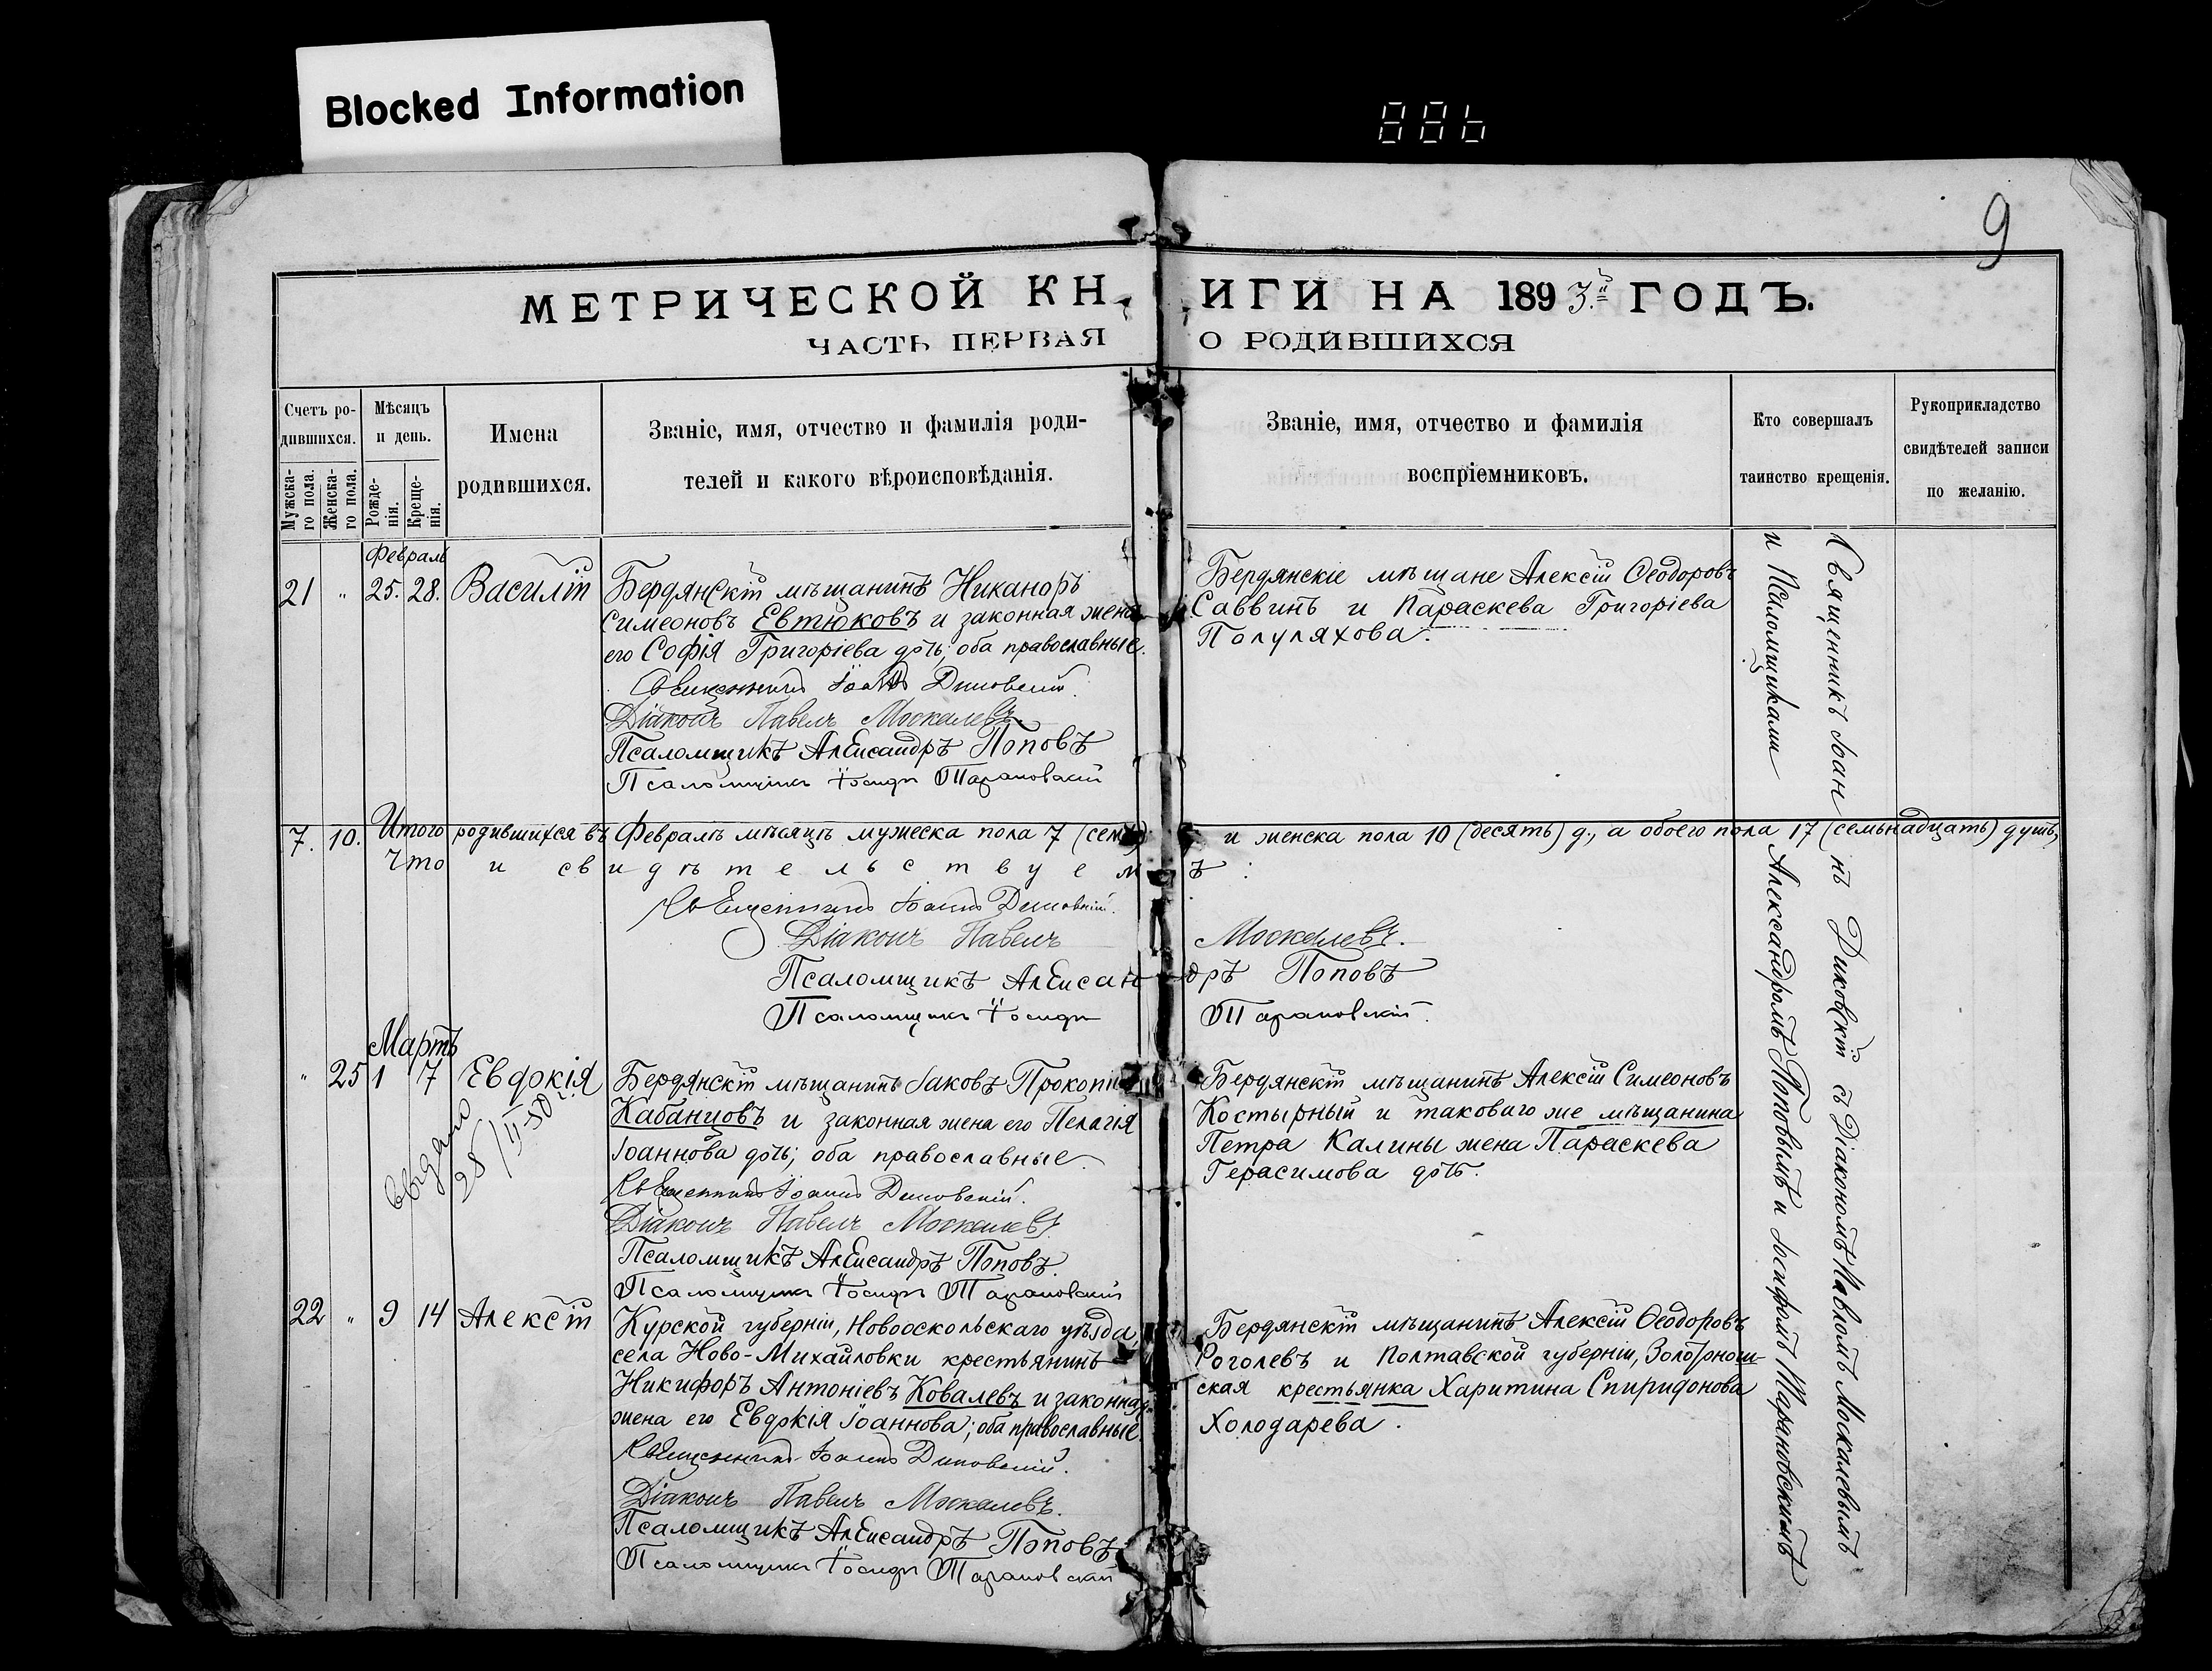 Blocked Information
886
9
МЕТРИЧЕСКОЙ КН ИГИ НА 1893й ГОДЪ.
ЧАСТЬ ПЕРВАЯ О РОДИВШИХСЯ
Счетъ ро-
дившихся.
Мужска-
го пола.
Женска-
го пола.
Мѣсяцъ
и день.
Рожде-
нія.
Креще-
нія.
Имена
родившихся.
Званіе, имя, отчество и фамилія роди-
телей и какого вѣроисповѣданія.
Званіе, имя, отчество и фамилія
воспріемниковъ.
Кто совершалъ
таинство крещенія.
Рукоприкладство
свидѣтелей записи
по желанію.
Февраль
21 " 25. 28. Василій
Бердянскій мѣщанинъ Никаноръ
Симеоновъ Евтюковъ и законная жена
его Софія Григоріева дочь; оба православные.
Священникъ Іоаннъ Диковскій.
Діаконъ Павелъ Москалевъ
Псаломщикъ Александръ Поповъ
Псаломщикъ Іосифъ Тарановскій
Бердянскіе мѣщане Алексій Ѳеодоровъ
Саввинъ и Параскева Григоріева
Полуляхова.
7. 10. Итого родившихся въ Февралѣ мѣсяцѣ мужеска пола 7 (семь) и женска пола 10 (десять) д., а обоего пола 17 (семьнадцать) душъ,
Что и свидѣтельствуемъ:
Священникъ Іоаннъ Диковскій.
Діаконъ Павелъ Москалевъ.
Псаломщикъ Александръ Поповъ
Псаломщикъ Іосифъ Тарановскій.
Мартъ
" 25 1 7 Евдокія
Выдано
28/II-50 г.
Бердянскій мѣщанинъ Іаковъ Прокопі
Кабанцовъ и законная жена его Пелагія
Іоаннова дочь; оба православные.
Священникъ Іоаннъ Диковскій.
Діаконъ Павелъ Москалевъ.
Псаломщикъ Александръ Поповъ.
Псаломщикъ Іосифъ Тарановскій
Бердянскій мѣщанинъ Алексій Симеоновъ
Костырный и таковаго же мѣщанина
Петра Калины жена Параскева
Герасимова дочь.
22 " 9 14 Алексій
Курской губерніи, Новооскольскаго уѣзда,
села Ново-Михайловки крестьянинъ
Никифоръ Антоніевъ Ковалевъ и законная
жена его Евдокія Іоаннова; оба православные.
Священникъ Іоаннъ Диковскій.
Діаконъ Павелъ Москалевъ.
Псаломщикъ Александръ Поповъ
Псаломщикъ Іосифъ Тарановскій
Бердянскій мѣщанинъ Алексій Ѳеодоровъ
Роголевъ и Полтавской губерніи, Золотонош-
ская крестьянка Харитина Спиридонова
Холодарева.
Священникъ Іоаннъ Диковскій съ Діакономъ Павломъ Москалевымъ
и Псаломщиками Александромъ Поповымъ и Іосифомъ Тарановскимъ